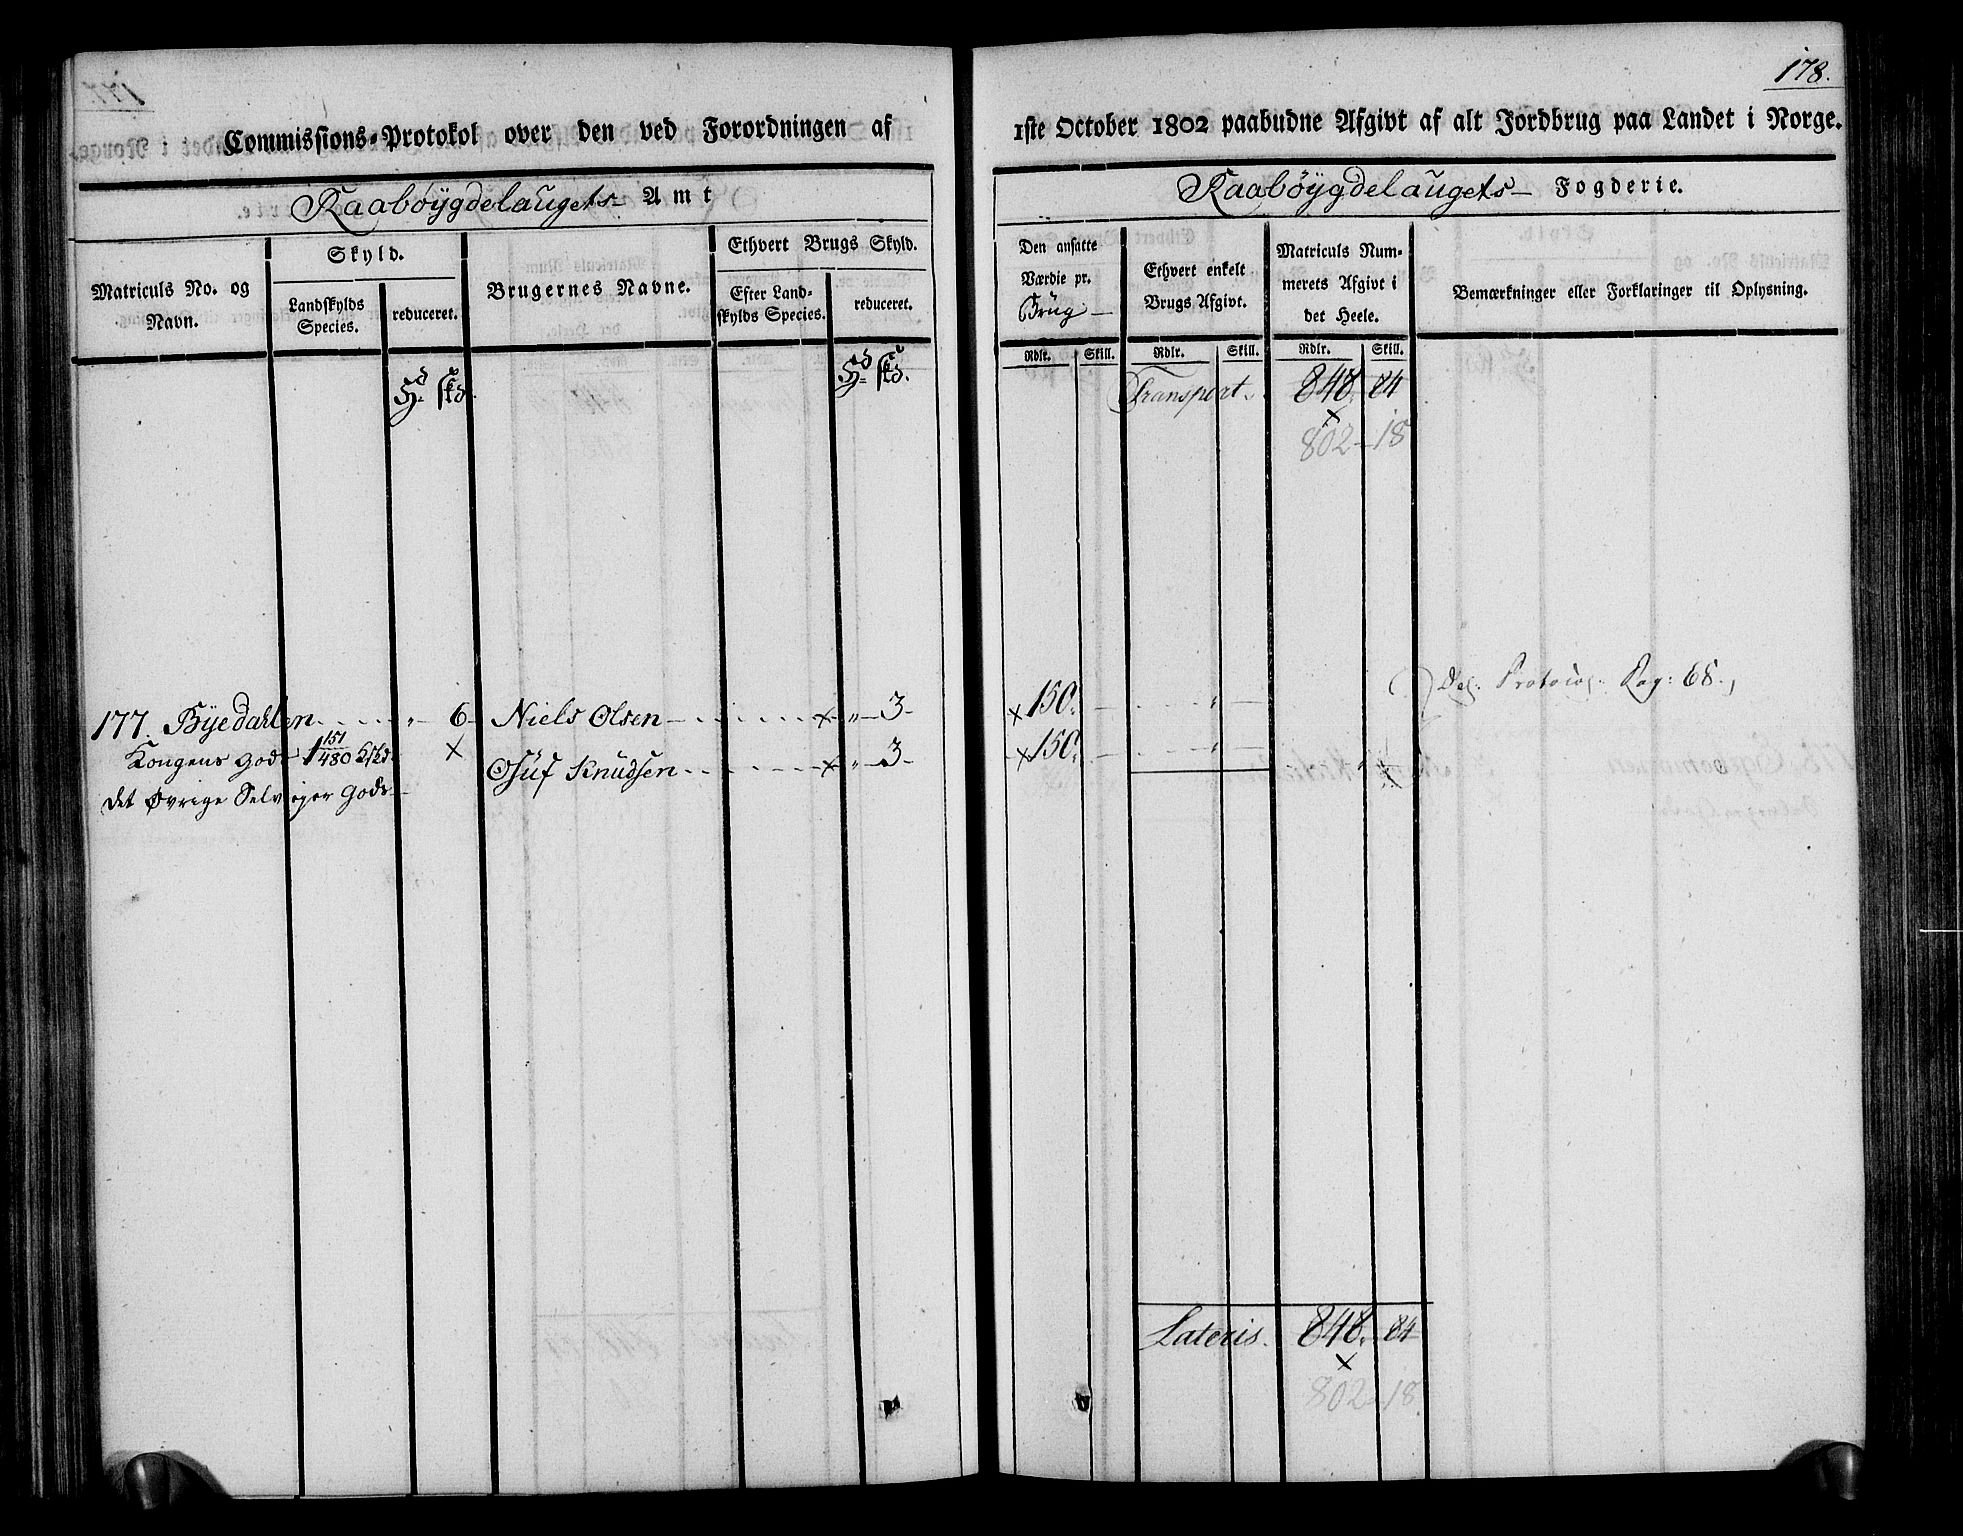 178.
Commissions-Protokol over den ved Forordningen af
1ste October 1802 paabudne Afgivt af alt Jordbrug paa Landet i Norge.
Raabøÿgdelaugets Amt
Raabøÿgdelaugets Fogderie.
Matriculs No. og Navn.
Skyld.
Landskylds Species.
reduceret.
Brugernes Navne.
Ethvert Brugs Skyld.
Efter Landskylds Species.
reduceret.
Den ansatte Værdie pr. Brüg
Ethvert enkelt Brugs Afgivt.
Matriculs Nummerets Afgivt i det Heele.
Bemærkninger eller Forklaringer til Oplysning.
Rdlr. Skill. Rdlr. Skill. Rdlr. Skill.
Hd skd. Hd skd.
Transport. 848. 84
×
802 - 18
Pag: 68.
177. Byedahlen . . . . „ 6 Niels Olsen . . . . × „ 3 × 150. „
Kongens Gods 1 151/480 ×
Osüf Knudsen . . . . × „ 3 × 150. „
det Øvrige Selveier Gods
Lateris. 848. 84
×
802 - 18.